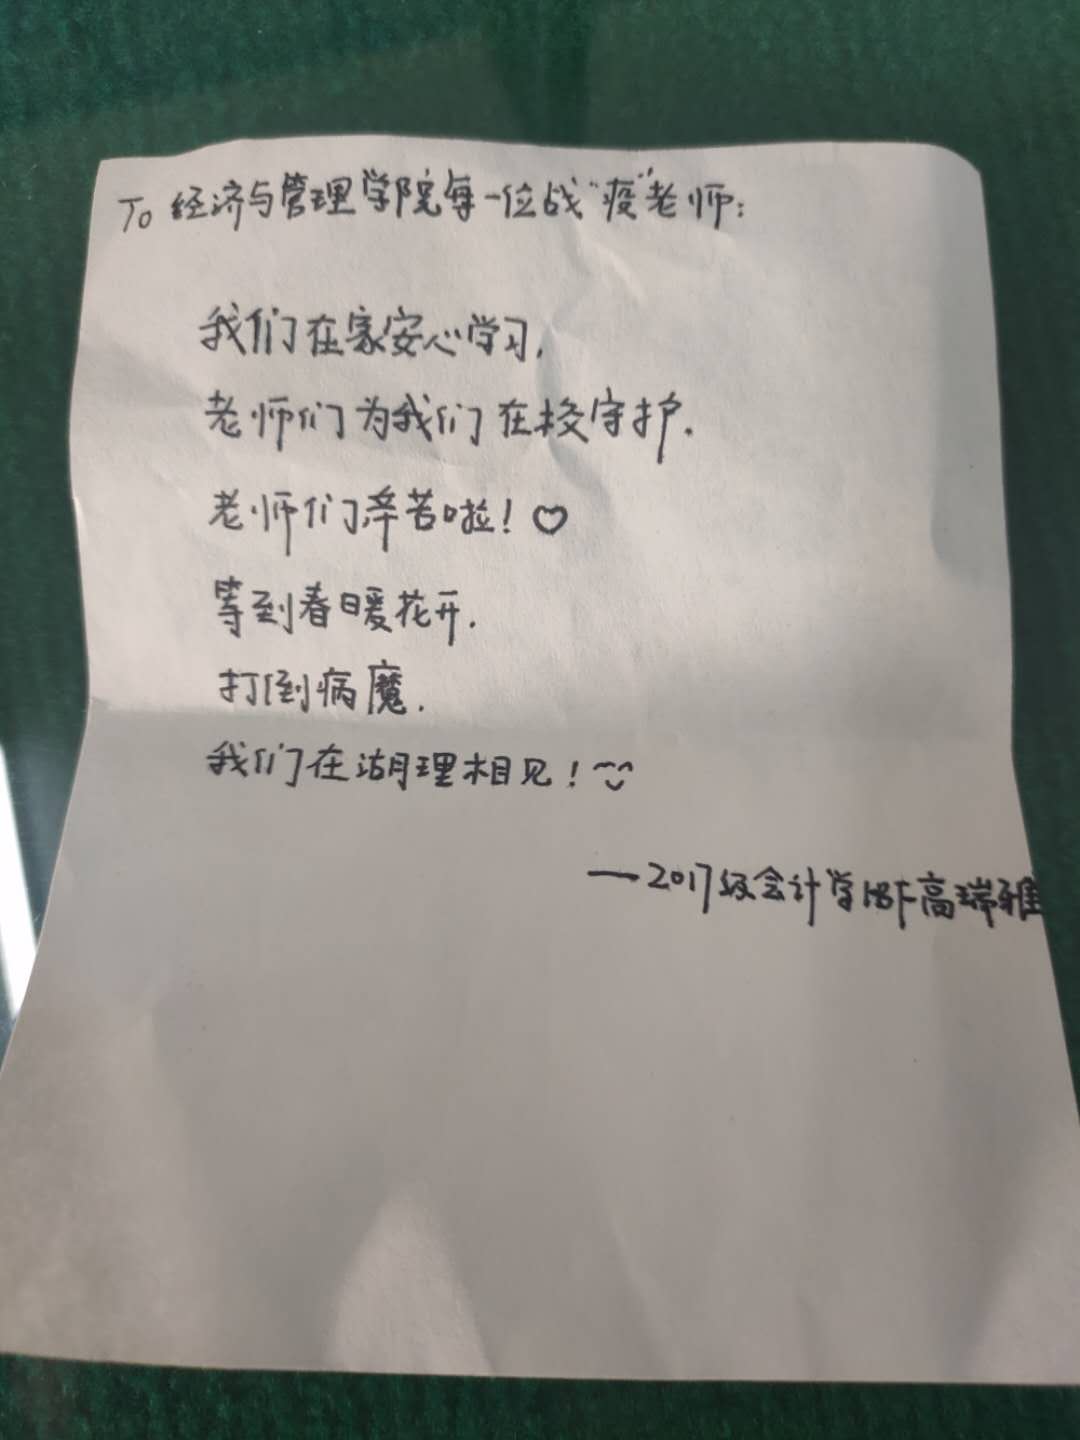 To 经济与管理学院每一位战“疫”老师：
我们在家安心学习，
老师们为我们在校守护．
老师们辛苦啦！♡
等到春暖花开．
打倒病魔．
我们在湖理相见！
一2017级会计学1BF高瑞雅